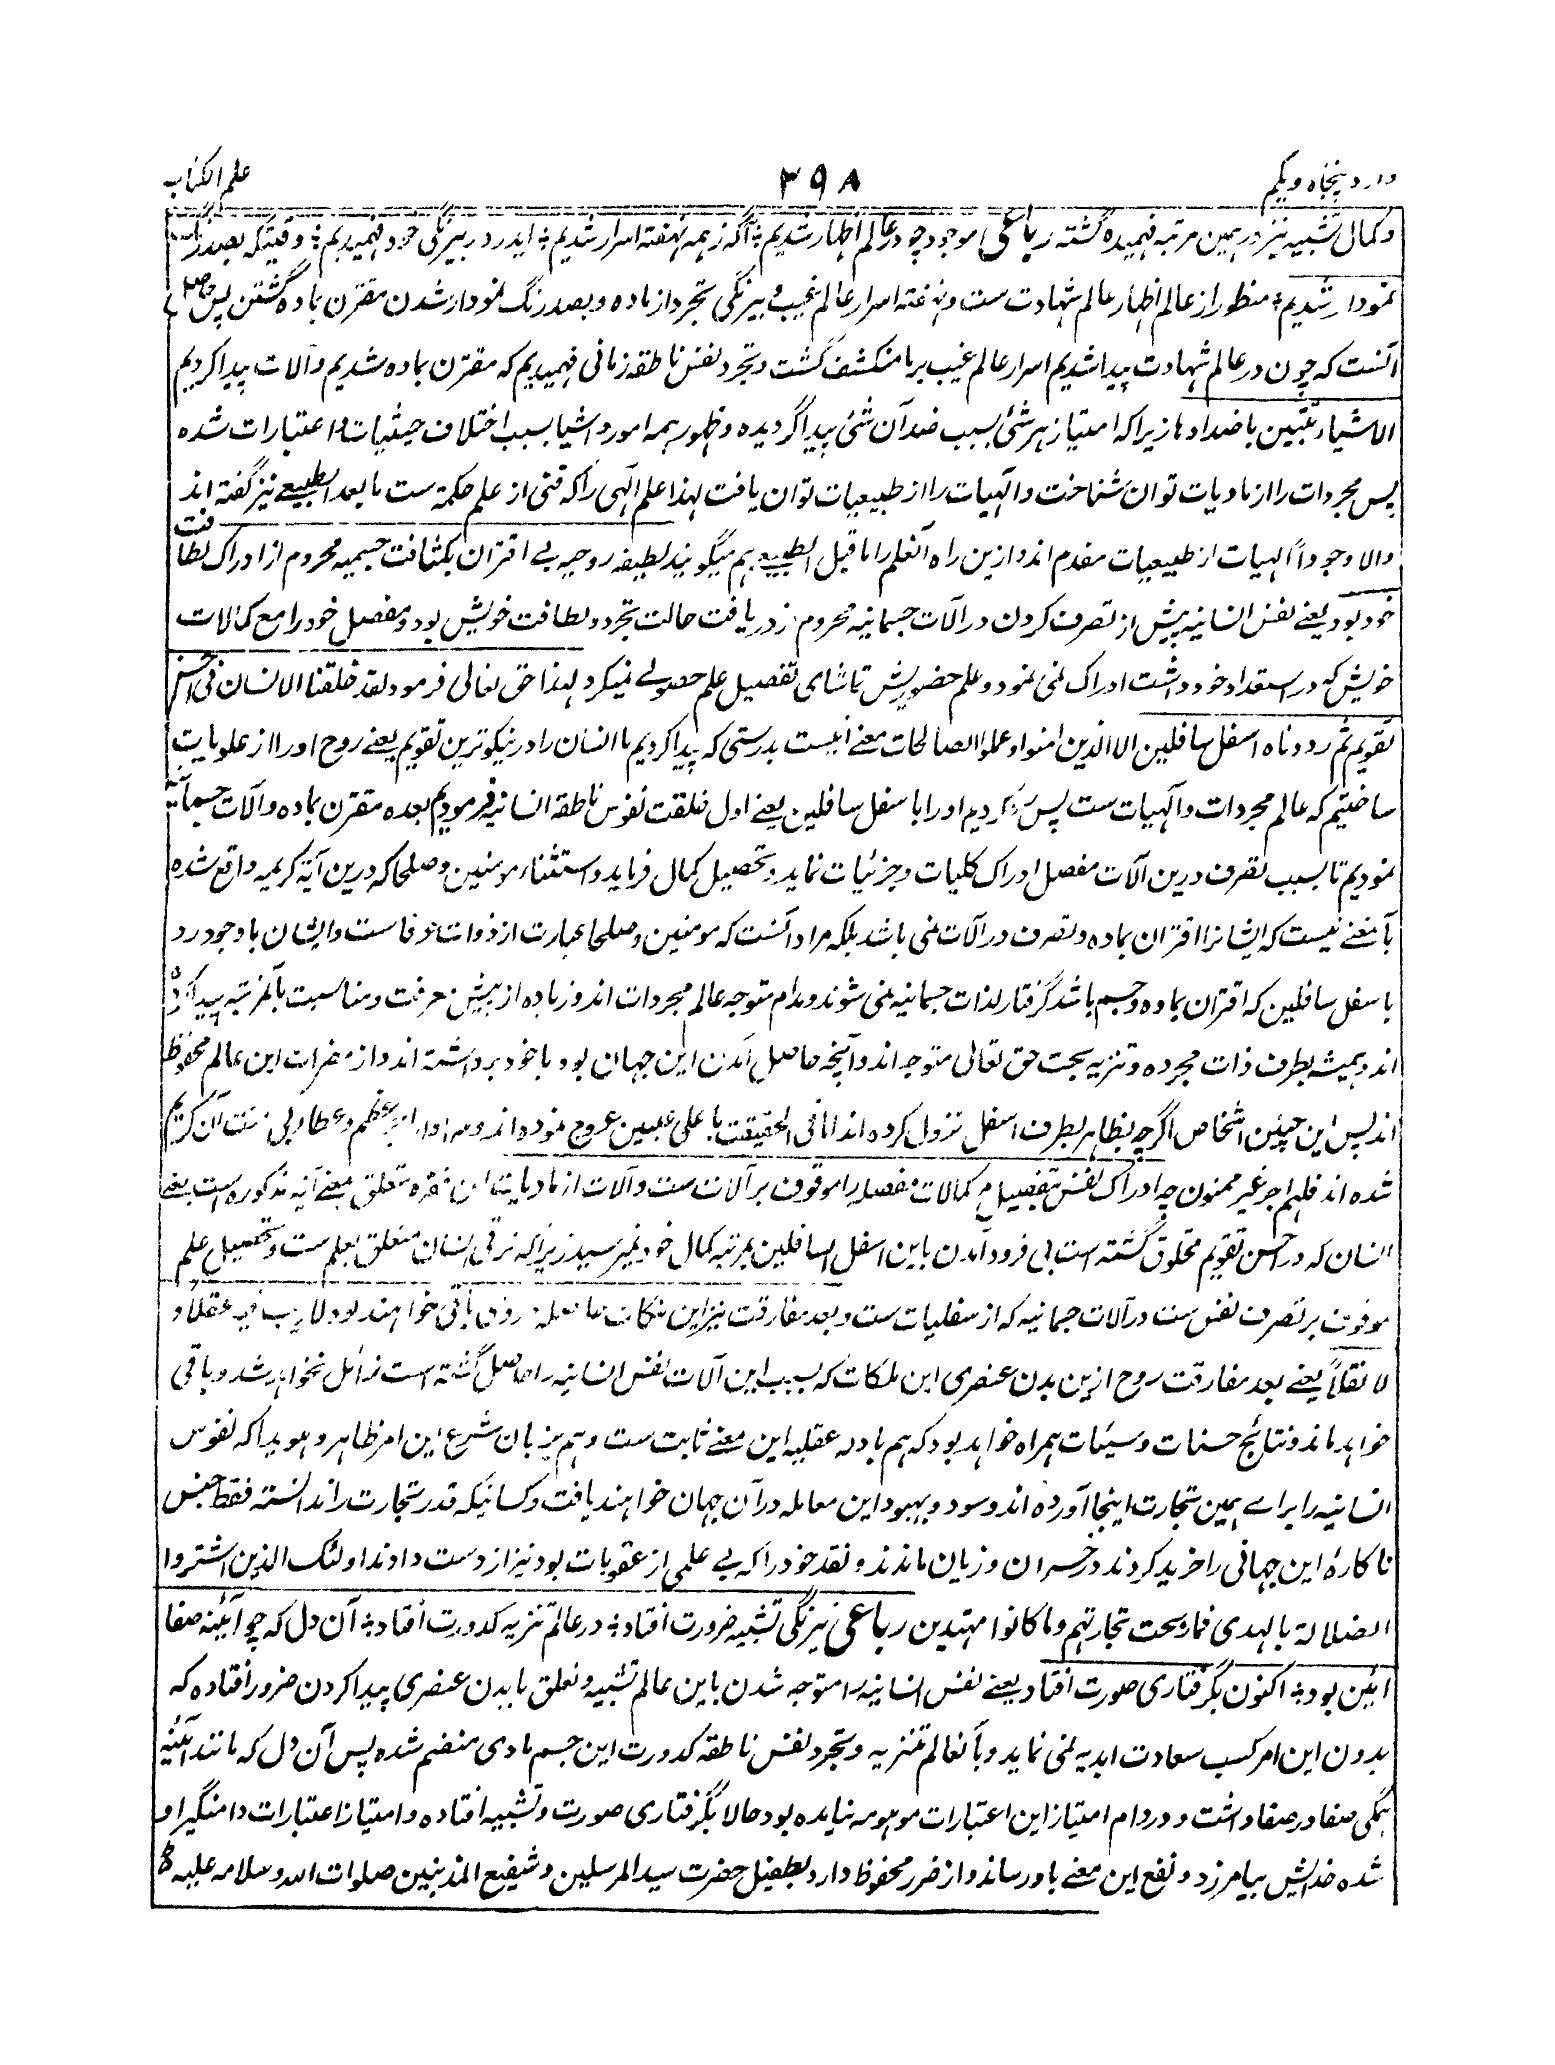 وارد پنجاه و یکم
۳۹۸
علم الکتاب
و کمال تشبیه نیز در همین مرتبه فهمیده گشته رباعی موجود چو در عالم اظهار شدیم ٭ آگه ز همه نهفته اسرار شدیم ٭ ایدرد ر بیرنگی خود فهمیدیم ٭ وقتیکه بصدرنگ
نمودار شدیم ٭ منظور از عالم اظهار عالم شهادت ست و نهفته اسرار عالم غیب و بیرنگی تجرد از ماده و بصد رنگ نمودار شدن مقترن بماده گشتن پس حاصل
آنست که چون در عالم شهادت پیدا شدیم اسرار عالم غیب بر ما منکشف گشت و تجرد نفس ناطقه زمانی فهمیدیم که مقترن بماده شدیم و آلات پیدا کردیم
الاشیاء تتبین باضدادها زیرا که امتیاز هر شئ بسبب ضد آن شئ پیدا گردیده و ظهور همه امور و اشیا بسبب اختلاف حیثیات و اعتبارات شده
پس مجردات را از مادیات توان شناخت و الٓهیات را از طبیعیات توان یافت لهذا علم الٓهی را که فنی از علم حکمة ست ما بعد الطبیعے نیز گفته اند
والا وجوداً الٓهیات از طبیعیات مقدم اند و ازین راه آنعلم را ما قبل الطبیعے هم میگویند لطیفه روحیه بے اقتران بکثافت جسمیه محروم از ادراک لطافت
خود بود یعنے نفس انسانیه پیش از تصرف کردن در آلات جسمانیه محروم از دریافت حالت تجرد و لطافت خویش بود و مفصل خود را مع کمالات
خویش که در استعداد خود داشت ادراک نمی نمود و علم حضوریش تماشای تفصیل علم حصولے نمیکرد لهذا حق تعالی فرمود لقد خلقنا الانسان فی احسن
تقویم ثم رددناه اسفل سافلین الا الذین امنوا و عملوا الصالحات معنے اینست بدرستی که پیدا کردیم ما انسان را در نیکوترین تقویم یعنے روح او را از علویات
ساختیم که عالم مجردات و الٓهیات ست پس رد کردیم او را باسفل سافلین یعنے اول خلقت نفوس ناطقه انسانیه فرمودیم بعده مقترن بماده و آلات جسمانیه
نمودیم تا بسبب تصرف درین آلات مفصل ادراک کلیات و جزئیات نماید و تحصیل کمال فرماید و استثناء مومنین و صلحا که درین آیة کریمه واقع شده
بآنمعنے نیست که ایشانرا اقتران بماده و تصرف در آلات نمی باشد بلکه مراد آنست که مومنین و صلحا عبارت از ذوات عرفا ست و ایشان با وجود رد
باسفل سافلین که اقتران بماده و جسم باشد گرفتار لذات جسمانیه نمی شوند و مدام متوجه عالم مجردات اند و زیاده از پیش معرفت و مناسبت بآنمرتبه پیدا کرده
اند و همیشه بطرف ذات مجرده و تنزیه بحت حق تعالی متوجه اند و آنچه حاصل آمدن این جهان بود با خود برداشته اند و از مضرات این عالم محفوظ
اند پس این چنین اشخاص اگرچه بظاهر بطرف اسفل نزول کرده اند اما فی الحقیقت باعلی علیین عروج نموده اند و عطا بی منت آن کریم
شده اند فلهم اجر غیر ممنون چه ادراک نفس بتفصیل کمالات مفصله را موقوف بر آلات ست و آلات از مادیات این فقره متعلق بمعنے آیه مذکوره است یعنے
انسان که در احسن تقویم مخلوق گشته است بی فرود آمدن باین اسفل السافلین بمرتبه کمال خود نمیرسید زیرا که ترقی انسان متعلق بعلم ست و تحصیل علم
موقوف بر تصرف نفس ست در آلات جسمانیه که از سفلیات ست و بعد مفارقت نیز این ملکات حاصله روح باقی خواهند بود لا ریب فیه عقلاً و
لا نقلاً یعنے بعد مفارقت روح ازین بدن عنصری این ملکات که بسبب این آلات نفس انسانیه را حاصل گشته است زائل نخواهد شد و باقی
خواهد ماند و نتائج حسنات و سیئات همراه خواهد بود که هم بادله عقلیه این معنے ثابت ست و هم بزبان شرع این امر ظاهر و هویدا که نفوس
انسانیه را براے همین تجارت اینجا آورده اند و سود و بهبود این معامله در آن جهان خواهند یافت و کسانیکه قدر تجارت را ندانسته فقط جنس
ناکارهٔ این جهانی را خرید کردند در خسران و زیان ماندند و نقد خود را که بے علمی از عقوبات بود نیز از دست دادند اولئک الذین اشتروا
الضلالة بالهدی فما ربحت تجارتهم وما کانوا مهتدین رباعی نیرنگی تشبیه ضرورت افتاد ٭ در عالم تنزیه کدورت افتاد ٭ آن دل که چو آئینه صفا
آئین بود ٭ اکنون بگرفتاری صورت افتاد یعنے نفس انسانیه را متوجه شدن باین عالم تشبیه و تعلق با بدن عنصری پیدا کردن ضرور افتاده که
بدون این امر کسب سعادت ابدیه نمی نماید و بآنعالم تنزیه و تجرد نفس ناطقه کدورت این جسم مادی منضم شده پس آن دل که مانند آئینه
همگی صفا در صفا داشت و در دام امتیاز این اعتبارات موهومه نیامده بود حالا بگرفتاری صورت و تشبیه افتاده و امتیاز اعتبارات دامنگیر او
شده خدایش بیامرزد و نفع این معنے باو رساند و از ضرر محفوظ دارد بطفیل حضرت سید المرسلین و شفیع المذنبین صلوات الله و سلامه علیه